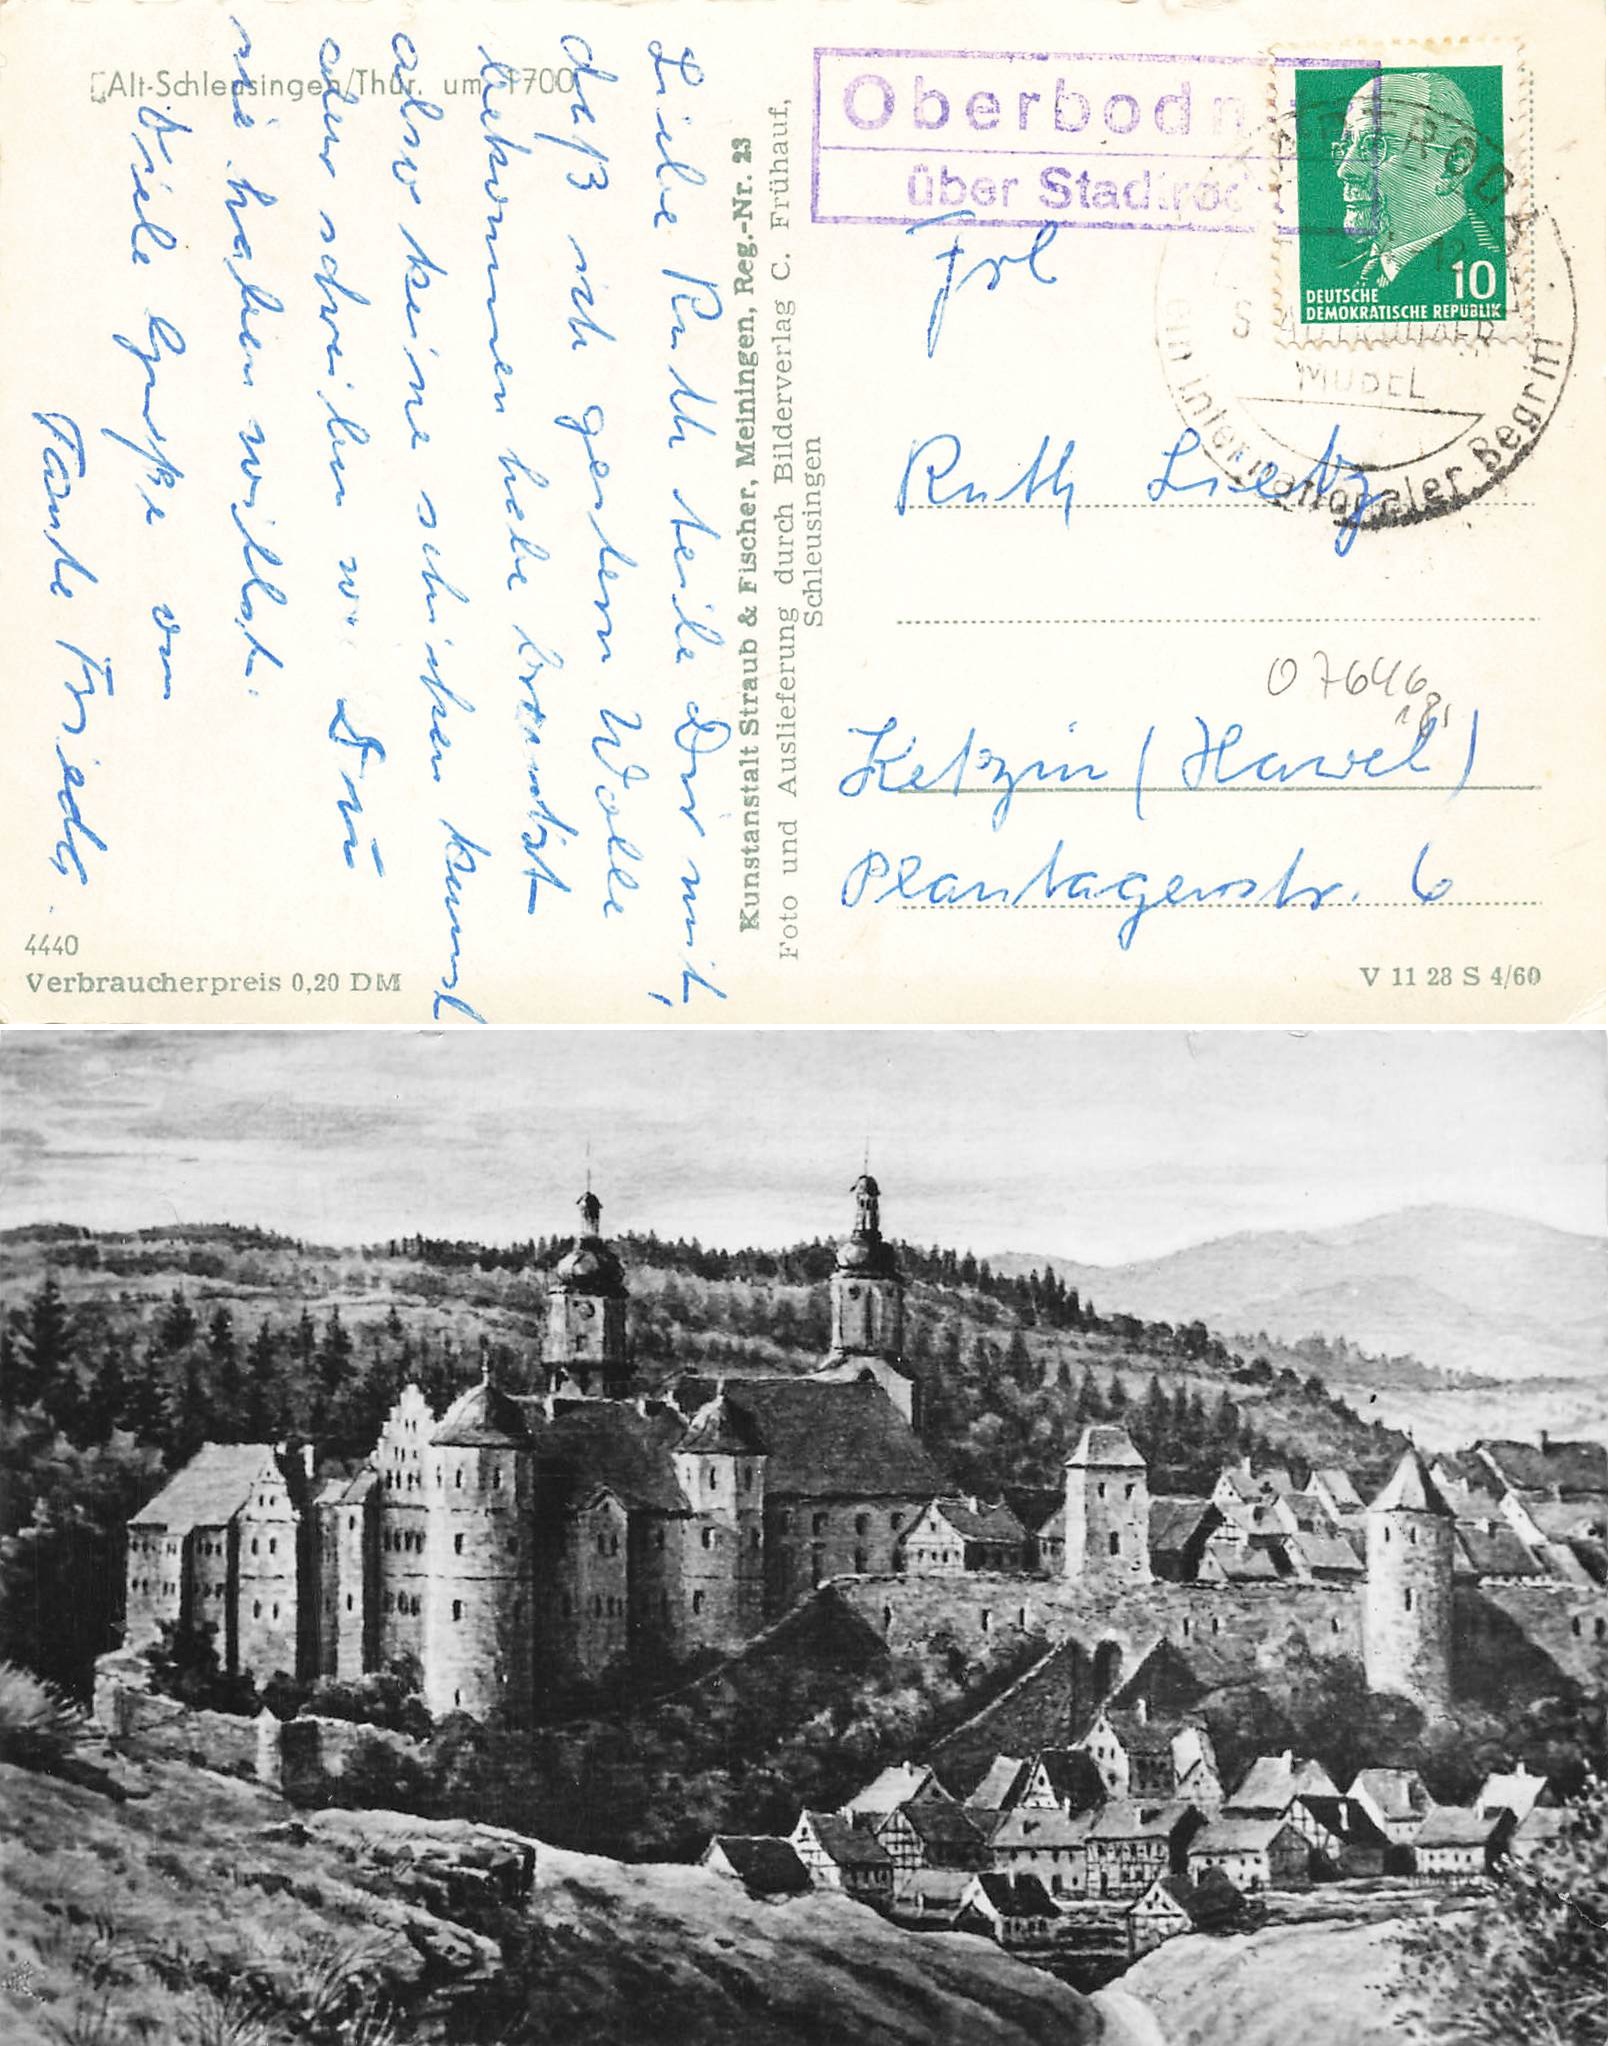 Alt-Schleusingen/Thür. um 1700
Liebe Ruth teile Dir mit,
daß ich gestern Wolle
bekommen habe brauchst
also keine schicken kannst
aber schreiben wo Du
sie haben willst.
Viele Grüße von
Tante Frieda
4440
Verbraucherpreis 0,20 DM
Kunstanstalt Straub & Fischer, Meiningen, Reg.-Nr. 23
Foto und Auslieferung durch Bilderverlag C. Frühauf,
Schleusingen
Oberbodn
über Stadtroda
DEUTSCHE
DEMOKRATISCHE REPUBLIK
10
STADTRODA
STADTRODAER
MÖBEL
ein internationaler Begriff
Frl
Ruth Lietz
07646
Ketzin (Havel)
Plantagenstr. 6
V 11 28 S 4/60